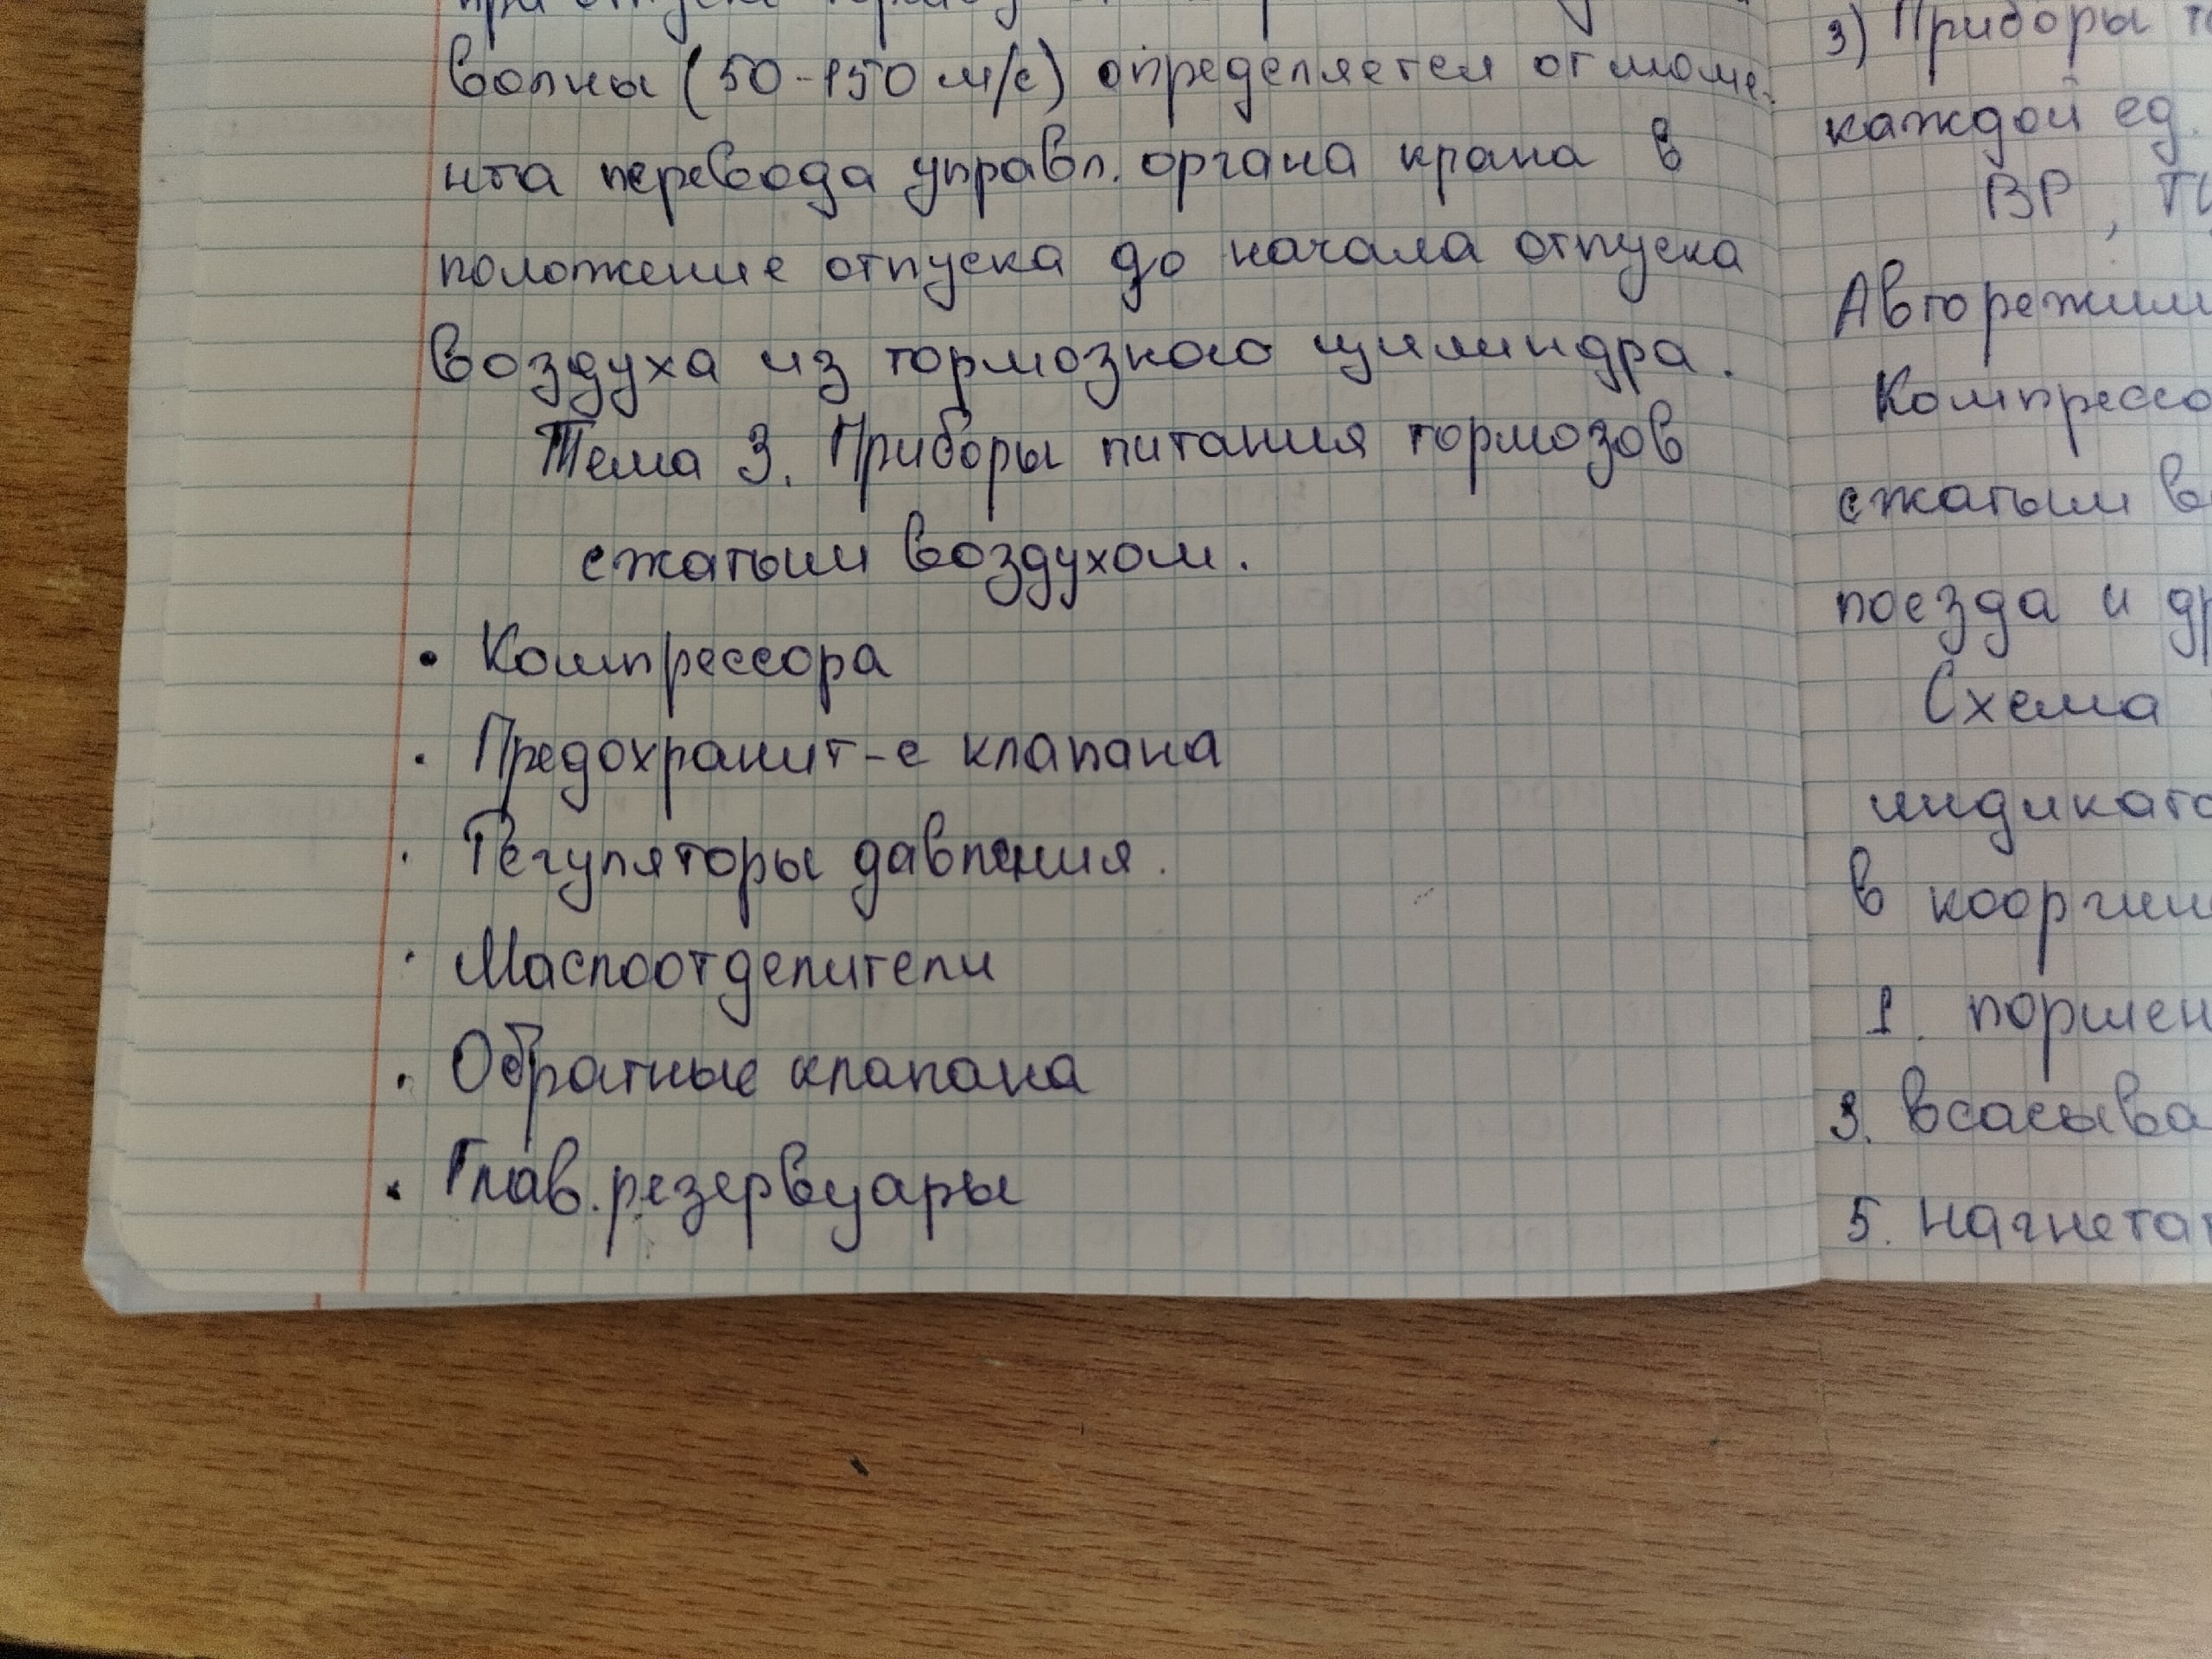 при отпуске
волны (50-150 м/с) определяется от моме-
нта перевода управл. органа крана в
положение отпуска до начала отпуска
воздуха из тормозного цилиндра.
Тема 3. Приборы питания тормозов
сжатым воздухом.
• Компрессора
• Предохранит-е клапана
· Регуляторы давления.
· Маслоотделители
· Обратные клапана
• Глав. резервуары
3) Приборы
каждой ед.
ВР,
Авторежим
Компрессо
сжатым в
поезда и др
Схема
индикато
в коорди
1. поршен
3. Всасыва
5. Нагнетат